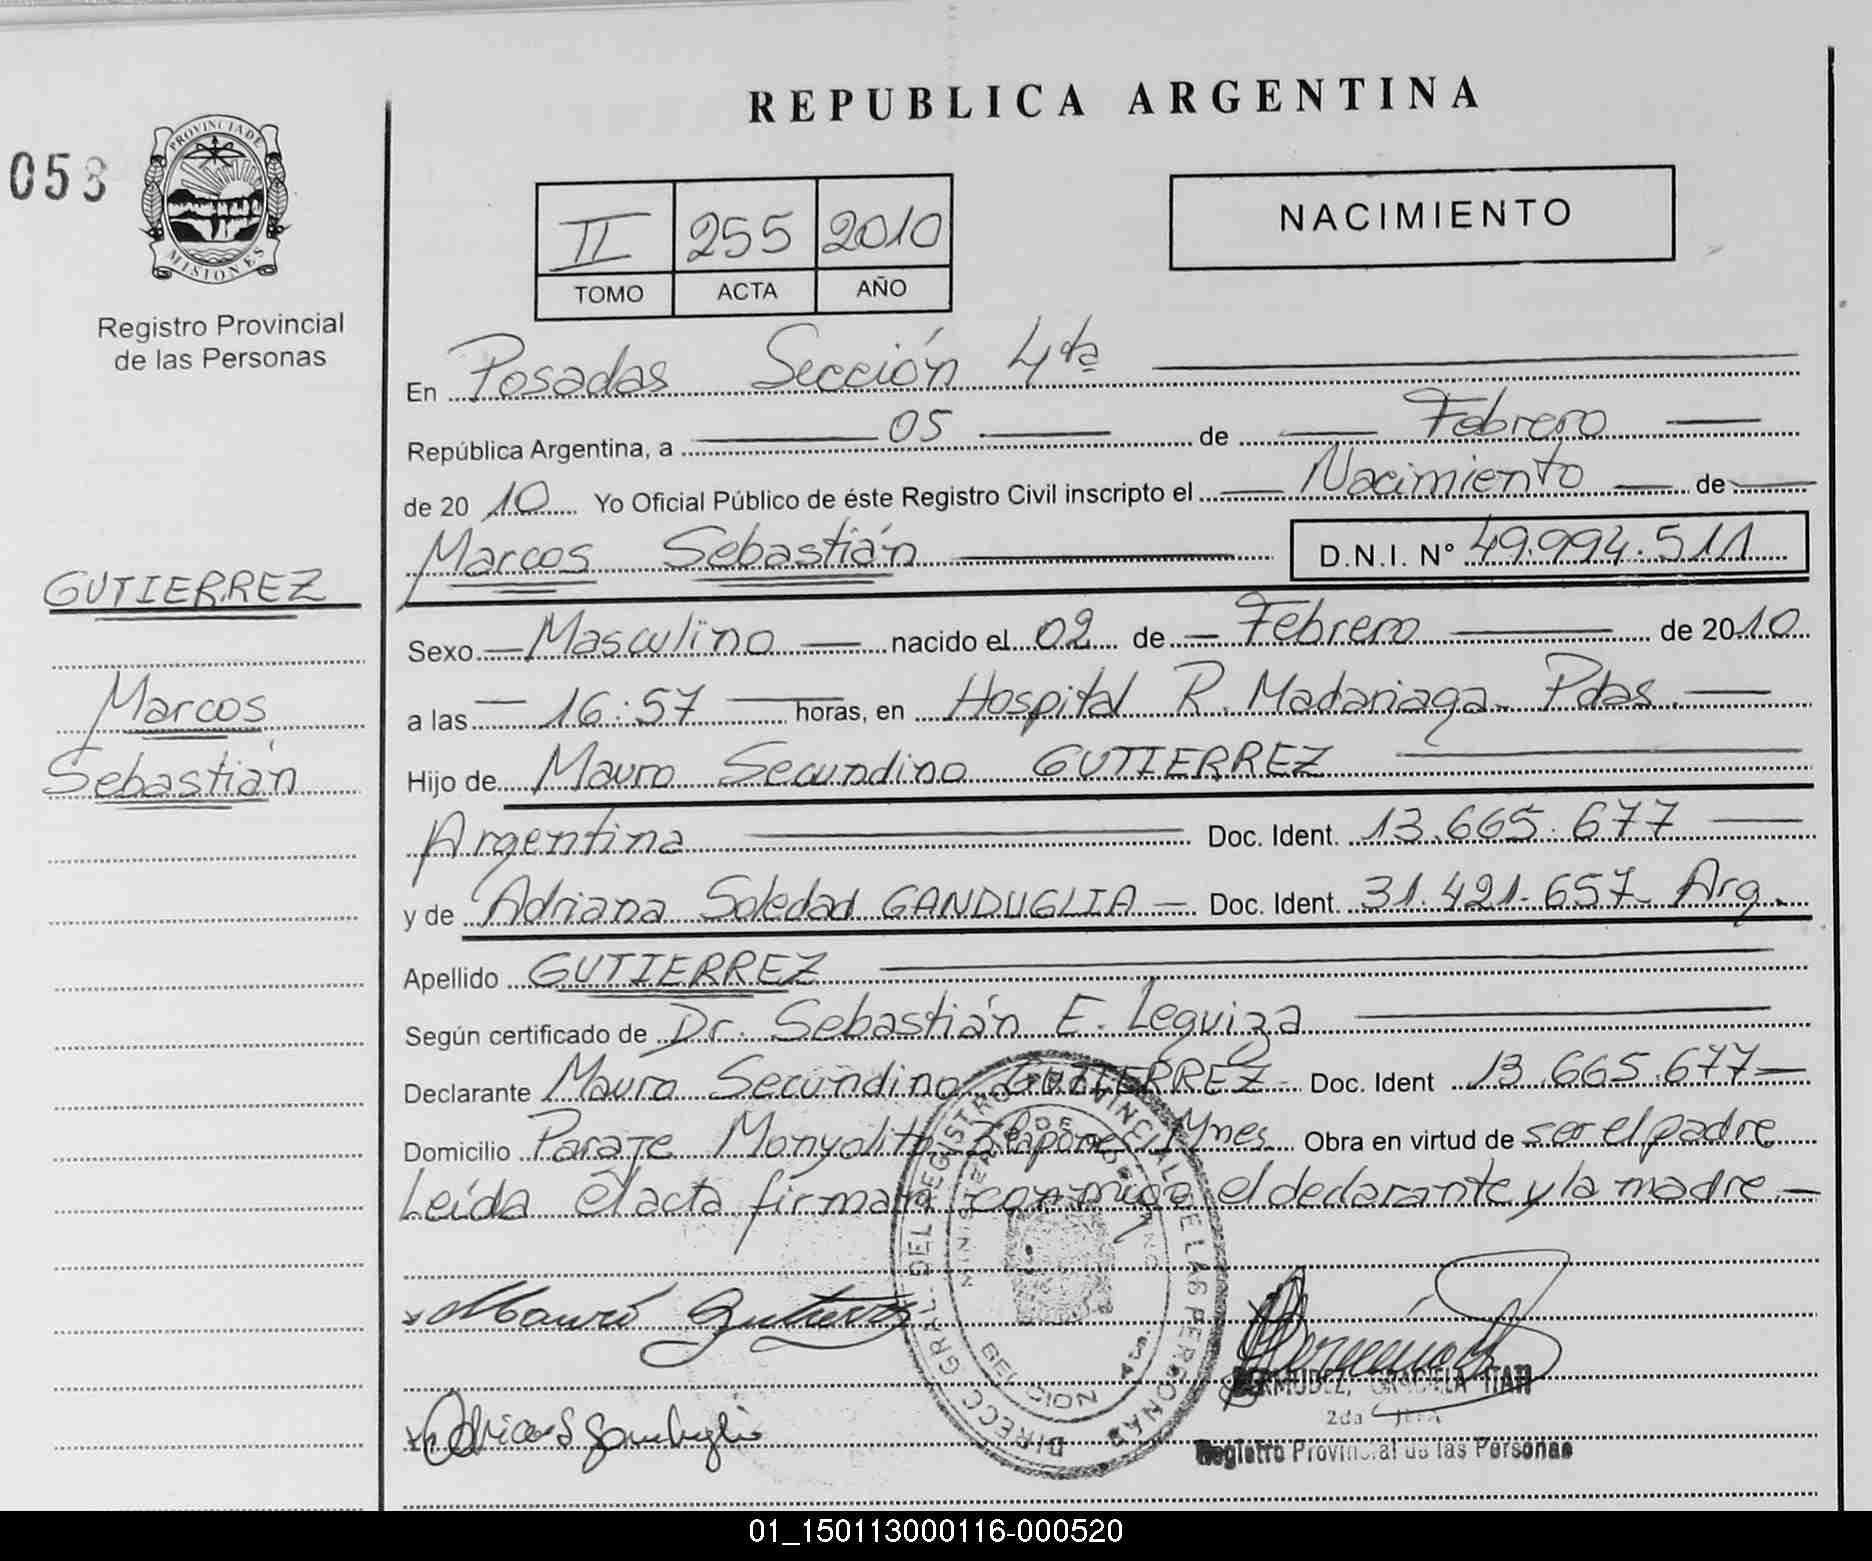 REPUBLICA ARGENTINA
053
PROVINCIA DE
MISIONES
Registro Provincial
de las Personas
II 255 2010
TOMO ACTA AÑO
NACIMIENTO
En Posadas Sección 4ta
República Argentina, a 05 de Febrero
de 2010 Yo Oficial Público de éste Registro Civil inscripto el Nacimiento de
Marcos Sebastián D.N.I. Nº 49.994.511
GUTIERREZ
Marcos
Sebastián
Sexo Masculino nacido el 02 de Febrero de 2010
a las 16:57 horas, en Hospital R. Madariaga- Pdas.
Hijo de Mauro Secundino GUTIERREZ
Argentina Doc. Ident. 13.665.677
y de Adriana Soledad GANDUGLIA Doc. Ident. 31.421.657- Arg.
Apellido GUTIERREZ
Según certificado de Dr. Sebastián E. Leguiza
Declarante Mauro Secundino GUTIERREZ Doc. Ident 13.665.677
Domicilio Paraje Mnes. Obra en virtud de ser el padre
Leída el acta firman conmigo el declarante y la madre
DIRECC GRAL. DEL REGISTRO PROVINCIAL DE LAS PERSONAS
Mauro Gutierrez
BERMUDEZ, GRACIELA ITATI
2da JEFA
Registro Provincial de las Personas
01_150113000116-000520